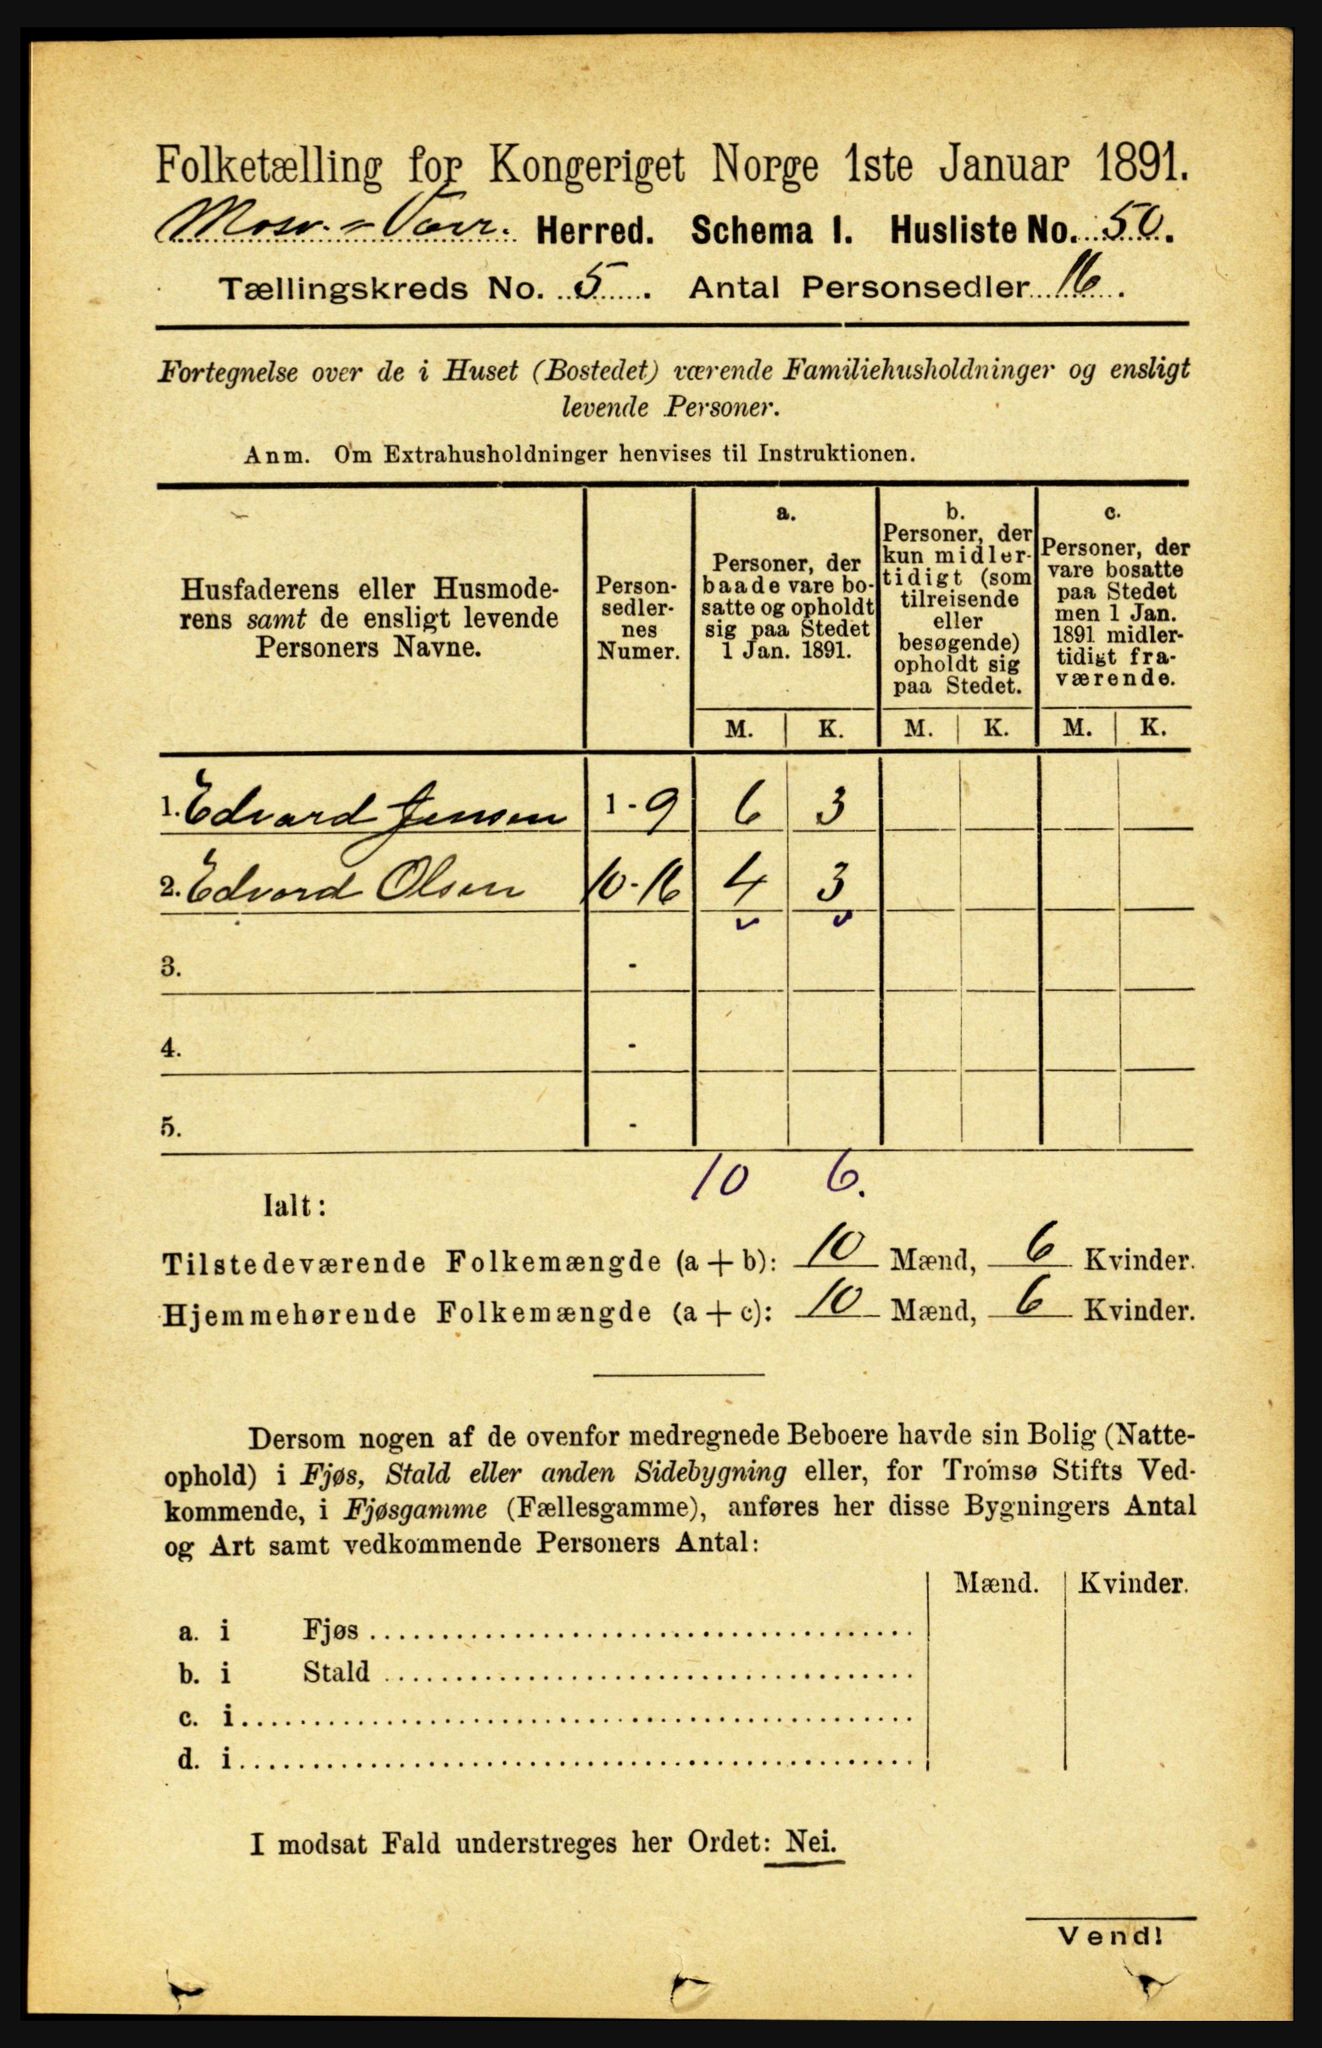 Folketælling for Kongeriget Norge 1ste Januar 1891.
Mosv. Varr. Herred. Schema I. Husliste No. 50.
Tællingskreds No. 5. Antal Personsedler 16.
Fortegnelse over de i Huset (Bostedet) værende Familiehusholdninger og ensligt
levende Personer.
Anm. Om Extrahusholdninger henvises til Instruktionen.
Husfaderens eller Husmode-
rens samt de ensligt levende
Personers Navne.
Person-
sedler-
nes
Numer.
a.
Personer, der
baade vare bo-
satte og opholdt
sig paa Stedet
1 Jan. 1891.
b.
Personer, der
kun midler-
tidigt (som
tilreisende
eller
besøgende)
opholdt sig
paa Stedet.
c.
Personer, der
vare bosatte
paa Stedet
men 1 Jan.
1891 midler-
tidigt fra-
værende.
M. K. M. K. M. K.
1. Edvard Jensen 1 - 9 6 3
2. Edvard Olsen 10-16 4 3
3. -
4. -
5. -
10 6.
Ialt:
Tilstedeværende Folkemængde (a + b): 10 Mænd, 6 Kvinder.
Hjemmehørende Folkemængde (a + c): 10 Mænd, 6 Kvinder.
Dersom nogen af de ovenfor medregnede Beboere havde sin Bolig (Natte-
ophold) i Fjøs, Stald eller anden Sidebygning eller, for Tromsø Stifts Ved-
kommende, i Fjøsgamme (Fællesgamme), anføres her disse Bygningers Antal
og Art samt vedkommende Personers Antal:
Mænd. Kvinder.
a. i Fjøs
b. i Stald
c. i
d. i
I modsat Fald understreges her Ordet: Nei.
Vend!